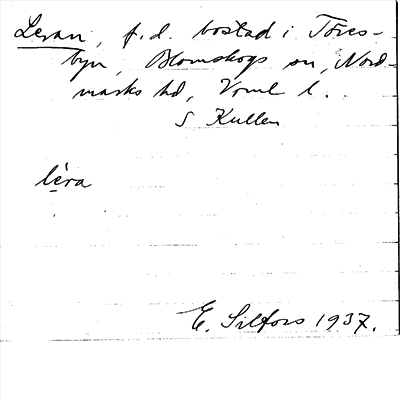 Leran, f.d. bostad i Töres-
byn, Blomskogs sn, Nord-
marks hd, Vrml l..
S Kullen
lera
E. Silfors 1937.